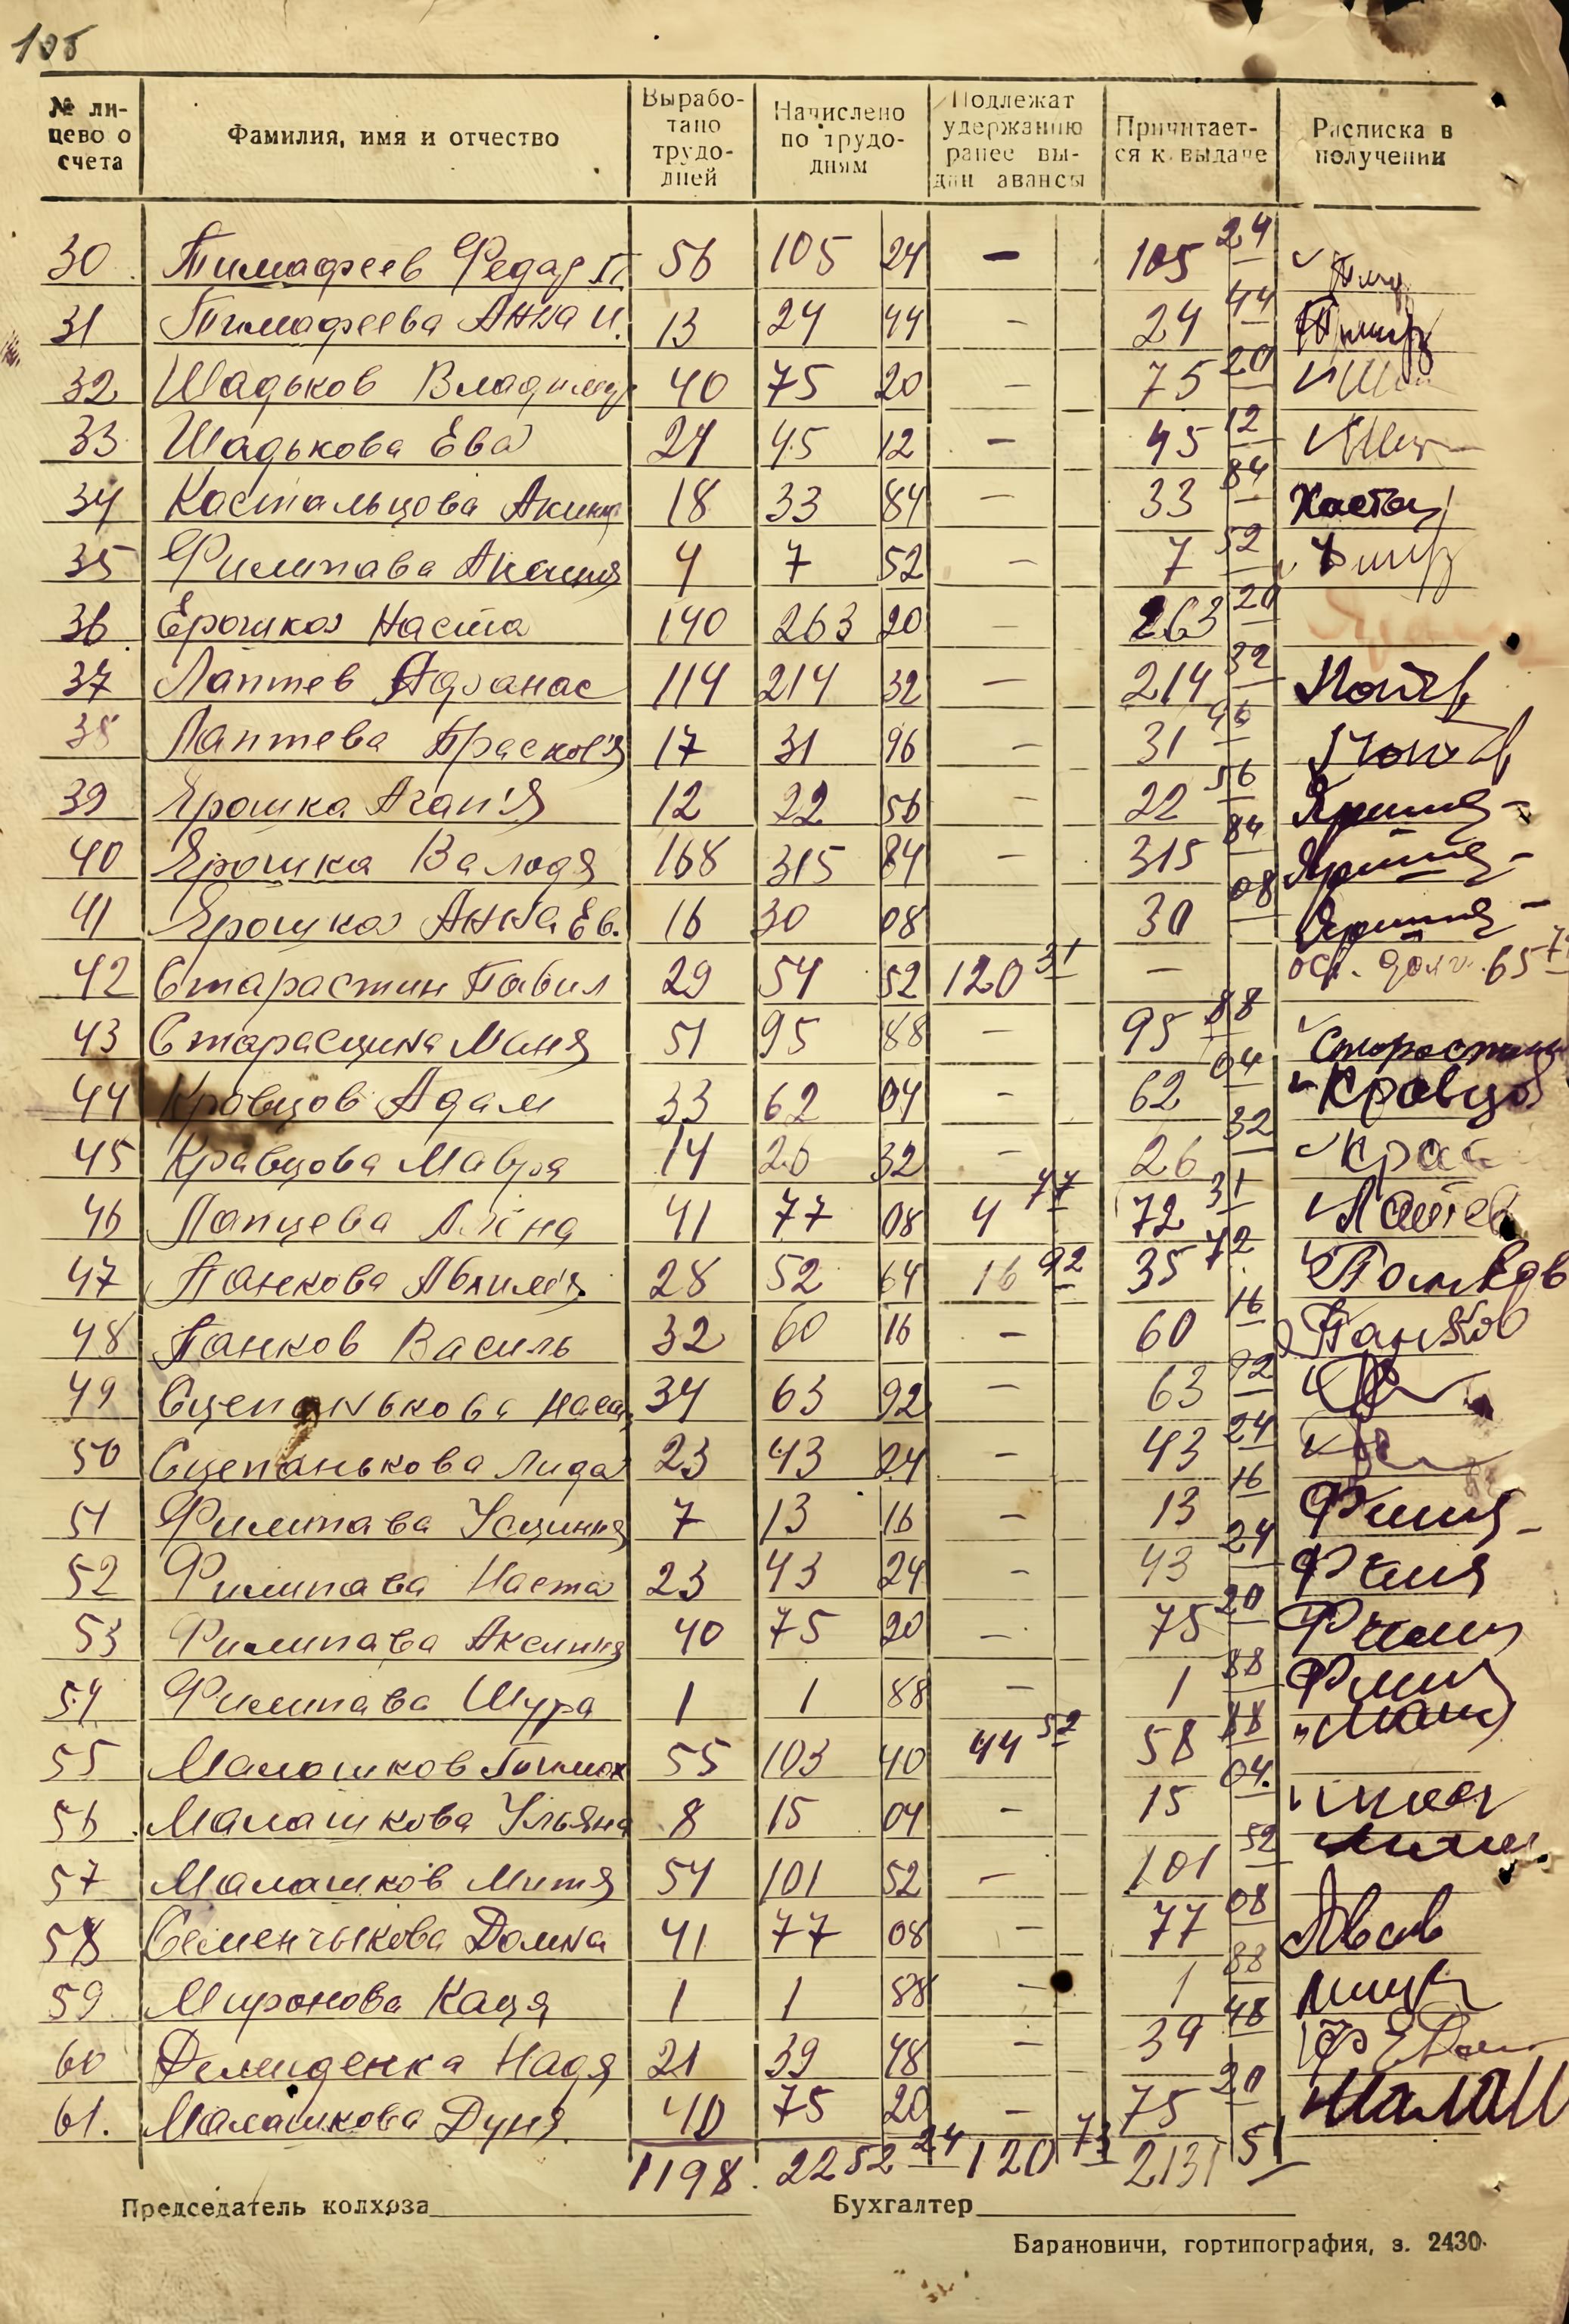 105
№ ли-
цево о
счета
Фамилия, имя и отчество
Вырабо-
тано
трудо-
дней
Начислено
по трудо-
дням
Подлежат
удержанию
ранее вы-
дан авансы
Причитает-
ся к выдаче
Расписка в
получении
30 Тимафеев Федар П. 56 105 24 — 105 24
31 Тимафеева Анна И. 13 24 44 — 24 44
32 Шадьков Владимир 40 75 20 — 75 20
33 Шадькова Ева 24 45 12 — 45 12
34 Кастальцова 18 33 84 — 33 84
35 Филипава 4 7 52 — 7 52
36 Ерошка Наста 140 263 20 — 263 20
37 Лаптев Афанас 114 214 32 — 214 32
38 Лаптева Прасков'я 17 31 96 — 31 96
39 Ярошка Агап'я 12 22 56 — 22 56
40 Ярошка Валодя 168 315 84 — 315 84
41 Ярошка Анна Ев. 16 30 08 — 30 08
42 Старастин Павил 29 54 52 120 31 — 65
43 Старасцина Маня 51 95 88 — 95 88
44 Кровцов Адам 33 62 04 — 62 04 Кровцов
45 Кравцова Мавра 14 26 32 — 26 32
46 Лапцева 41 77 08 4 77 72 31
47 Панкова 28 52 64 16 92 35 72
48 Панков Василь 32 60 16 — 60 16 Панков
49 Сцепанькова 34 63 92 — 63 92
50 Сцепанькова Лида 23 43 24 — 43 24
51 Филипава Усциння 7 13 16 — 13 16
52 Филипава Наста 23 43 24 — 43 24
53 Филипава Аксиння 40 75 20 — 75 20
54 Филипава Шура 1 1 88 — 1 88
55 Малашков 55 103 40 44 52 58 88
56 Малашкова Ульяна 8 15 04 — 15 04.
57 Малашков Митя 54 101 52 — 101 52
58 Семенчыкова Домна 41 77 08 — 77 08
59 Миронова Каця 1 1 88 — 1 88
60 Демиденка Надя 21 39 48 — 39 48
61. Малашкова Дуня 40 75 20 — 75 20
1198. 2252 24 120 73 2131 51
Председатель колхоза Бухгалтер
Барановичи, гортипография, з. 2430.